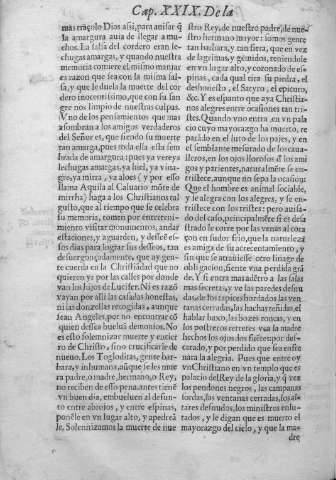 Cap. XXIX. De la
mas traçolo Dios assi, para auisar q̃
la amargura auia de llegar a mu-
chos. La salsa del cordero eran le-
chugas amargas, y quando nuestra
memoria comiere el mismo manjar
es razon que sea con la misma sal-
sa, y que le duela la muerte del cor-
dero inocentissimo, que con su san
gre nos limpio de nuestras culpas.
Vno de los pensamientos que mas
assombran a los amigos verdaderos
del Señor es, que siendo su muerte
tan amarga, pues toda ella esta sem
brada de amargura: pues ya vereys
lechugas amargas, ya hiel, ya vina-
gre, ya mirra, ya aloes (y por esso
llama Aquila al Caluario môte de
mirrha) haga a los Christianos tal
gusto, que al tiempo que se celebra
su memoria, tomen por entreteni-
miento visitar monumentos, andar
estaciones, y aguarden, y desseẽ es-
sos dias para lograr sus desseos, tan
desuergonçadamente, que ay gen-
te cuerda en la Christiãdad que no
quieren yr por las calles por donde
van los hijos de Lucifer. Ni es razõ
vayan por alli las casadas honestas,
ni las donzellas recogidas, aunque
sean Angeles, por no encontrar cõ
quien dessea huelã demonios. No
es esto solemnizar muerte y entier
ro de Christo, sino crucificarle de
nueuo. Los Togloditas, gente bar-
bara, y inhumana, aũque se les mue
ra padre, o madre, hermano, o Rey,
no reciben de esso pena: antes tienẽ
vn buen dia, embueluen al defun-
to entre abrojos, y entre espinas,
ponẽle en vn lugar alto, y apedreã
le. Solennizamos la muerte de nue
stro Rey, de nuestro padre, de nue-
stro hermano mayor: somos gente
tan barbara, y tan fiera, que en vez
de lagrimas, y gemidos, teniendole
en vn lugar alto, y corona do de es-
pinas, cada qual tira su piedra, el
deshonesto, el Satyro, el epicuro,
&c. Y es espanto que aya Christia-
nos alegres entre ocasiones tan tri-
stes. Quando vno entra en vn pala
cio cuyo mayorazgo ha muerto, re
partido en el luto de los pajes, y en
el semblante mesurado de los caua-
lleros, en los ojos llorosos d̃ los ami
gos y parientes, naturalmẽte se en-
tristece, aunque no sepa la ocasion:
Que el hombre es animal sociable,
y se alegra con los alegres, y se en-
tristece con los tristes: pero auisa-
do del caso, principalmẽte si es deu-
do le corre por las venas al cora
çon vn sudor frio, que la naturaleza
es amiga de su acrecentamiento, y
sin que se atrauiesse otro linage de
obligacion, siente vna perdida grã
de. Y si entra mas adẽtro a las salas
mas secretas, y ve las paredes desnu
das, de los tapices borlados las ven
tanas cerradas, las hachas resio̊as, el
hablar baxo, las bozes roncas, y en
los postreros retretes vea la madre
hechos los ojos dos fuẽtes: por def-
cerado, y por perdido que sea enfre
nara la alegria. Pues que entre oy
vn Christiano en vn templo que es
palacio del Rey de la gloria, y q̃ vea
los pendones negros, las campanas
sordas, las ventanas cerradas, los al-
tares desnudos, los ministros enlu-
tados, y le digan que es muerto el
mayorazgo del cielo, y que la ma-
dre